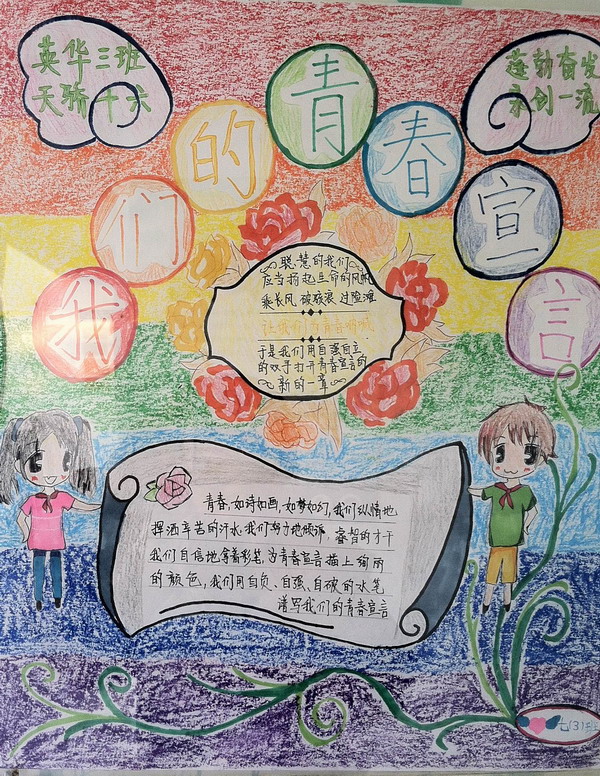 英华三班
天骄十六
蓬勃奋发
永创一流
我们的青春宣言
聪慧的我们
应当扬起生命的风帆
乘长风 破骇浪 过险滩
让我们为青春呐喊
于是我们用自强自立
的双手打开青春宣言的
新的一章
青春,如诗如画,如梦如幻,我们纵情地
挥洒辛苦的汗水,我们努力地倾泻 睿智的才干
我们自信地拿着彩笔,为青春宣言描上绚丽
的颜色,我们用自负、自强、自破的水笔
谱写我们的青春宣言
七(3)班